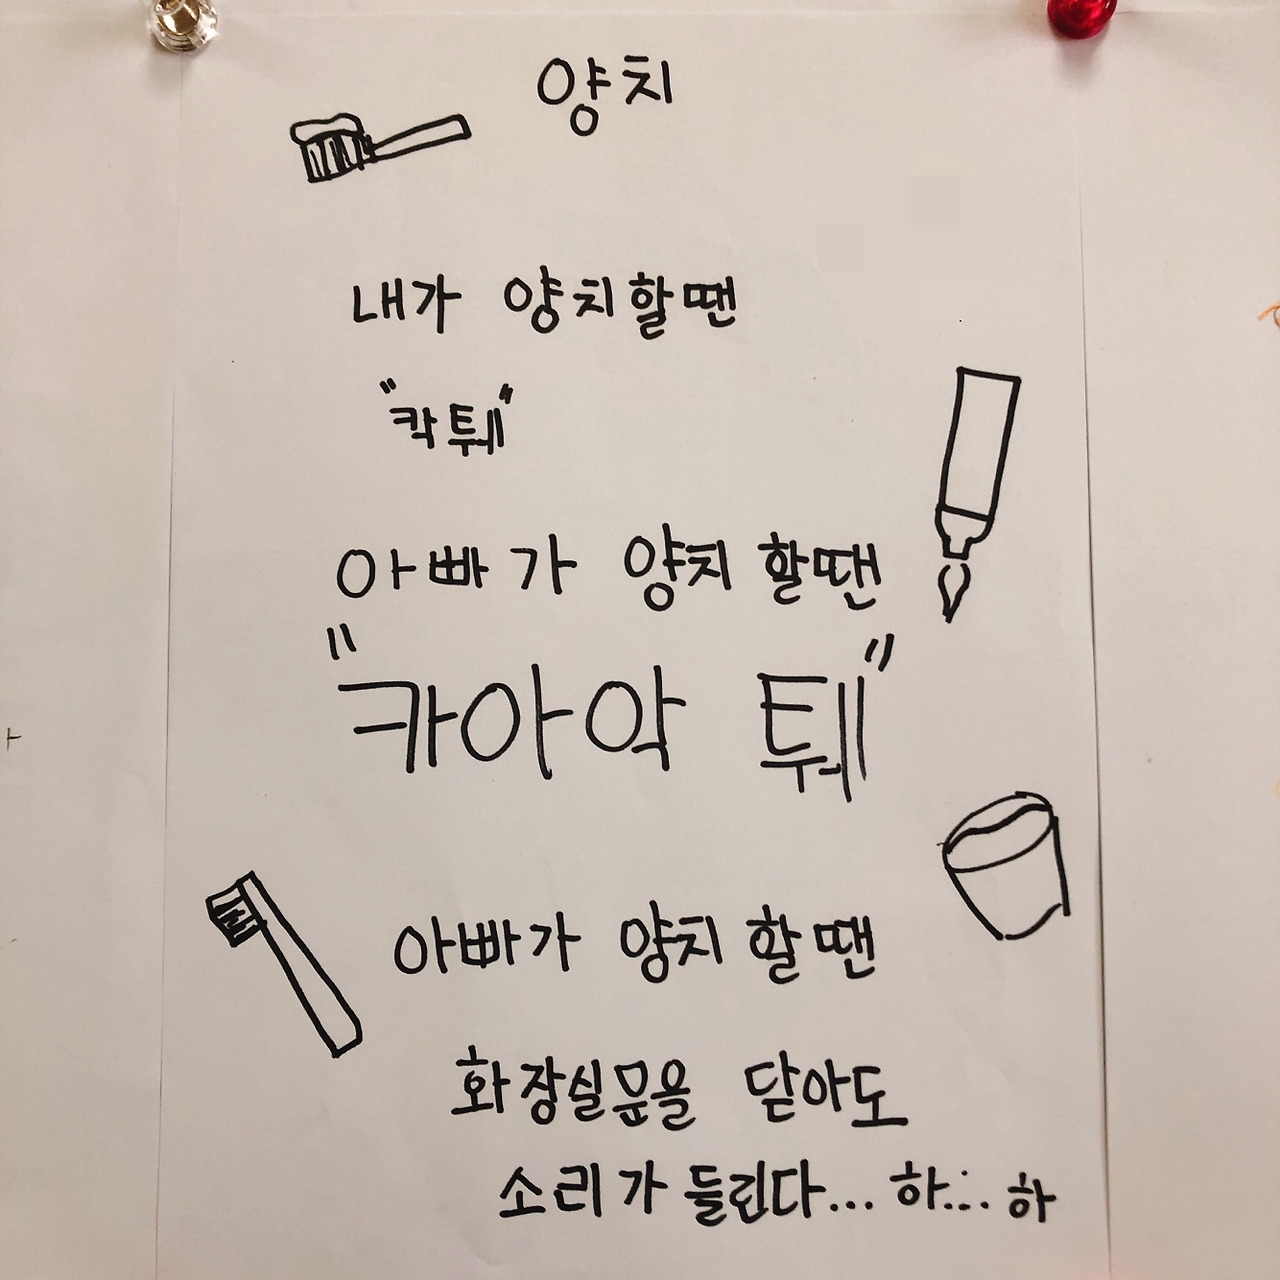 양치
내가 양치할땐
"칵퉤"
아빠가 양치 할땐
"카아악 퉤"
아빠가 양치 할땐
화장실문을 닫아도
소리가 들린다... 하... 하